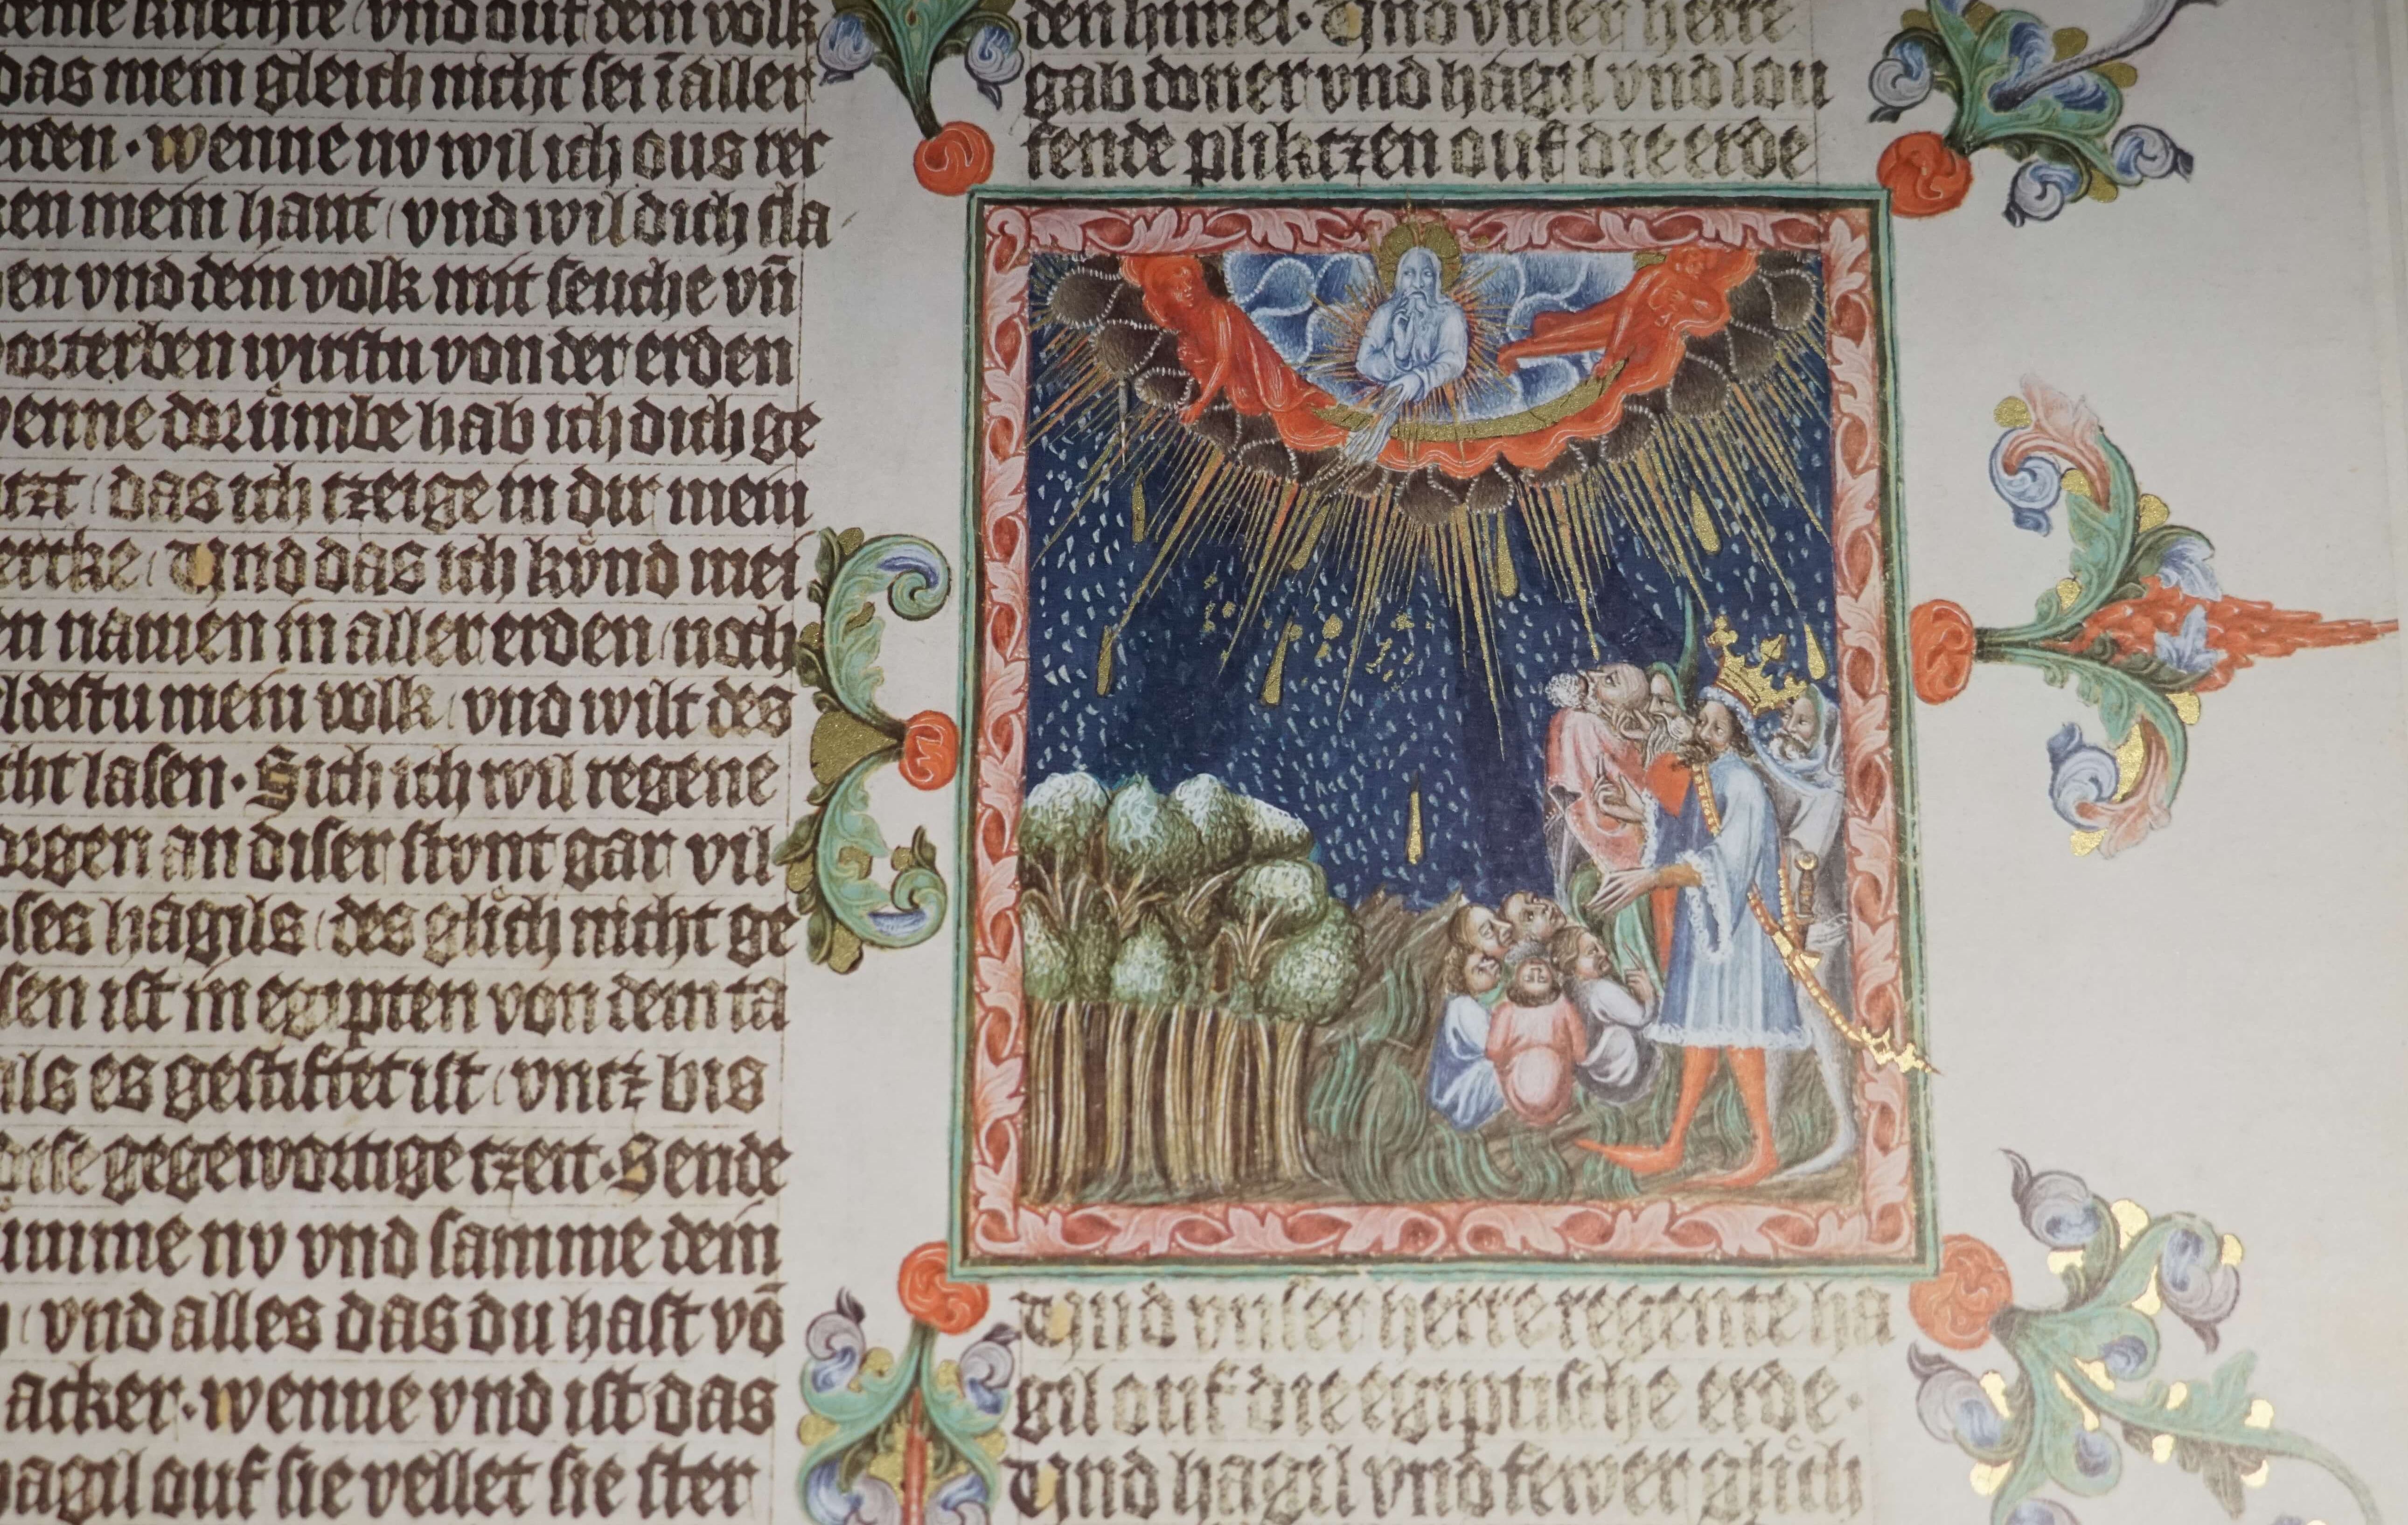 knechte vnd ouf dem volk
das mein gleich nicht sei ī aller
erden · wenne nv wil ich ous rec
ken mein hant vnd wil dich sla
hen vnd dein volk mit seuche vn̄
vorterben wirstu von der erden
wenne dorümbe hab ich dich ge
satzt das ich tzeige in dir mein
stercke Und das ich kv̈nd mei
nen namen in aller erden noch
heldestu mein volk vnd wilt des
nicht lasen · Sich ich wil regene
morgen an diser stvnt gar vil
groses hagils des glich nicht ge
wesen ist in egipten von dem ta
als es gestiftet ist vntz bis
dise gegewortige tzeit · Sende
nv vnd samme dein
vnd alles das du hast vō
acker · wenne vnd ist das
hagil ouf sie vellet sie ster
den himel · Und vnser herre
gab doner vnd hagil vnd lou
fende pliktzen ouf die erde
Und vnser herre regente ha
gil ouf die egiptische erde ·
Und hagil vnd fewer glich